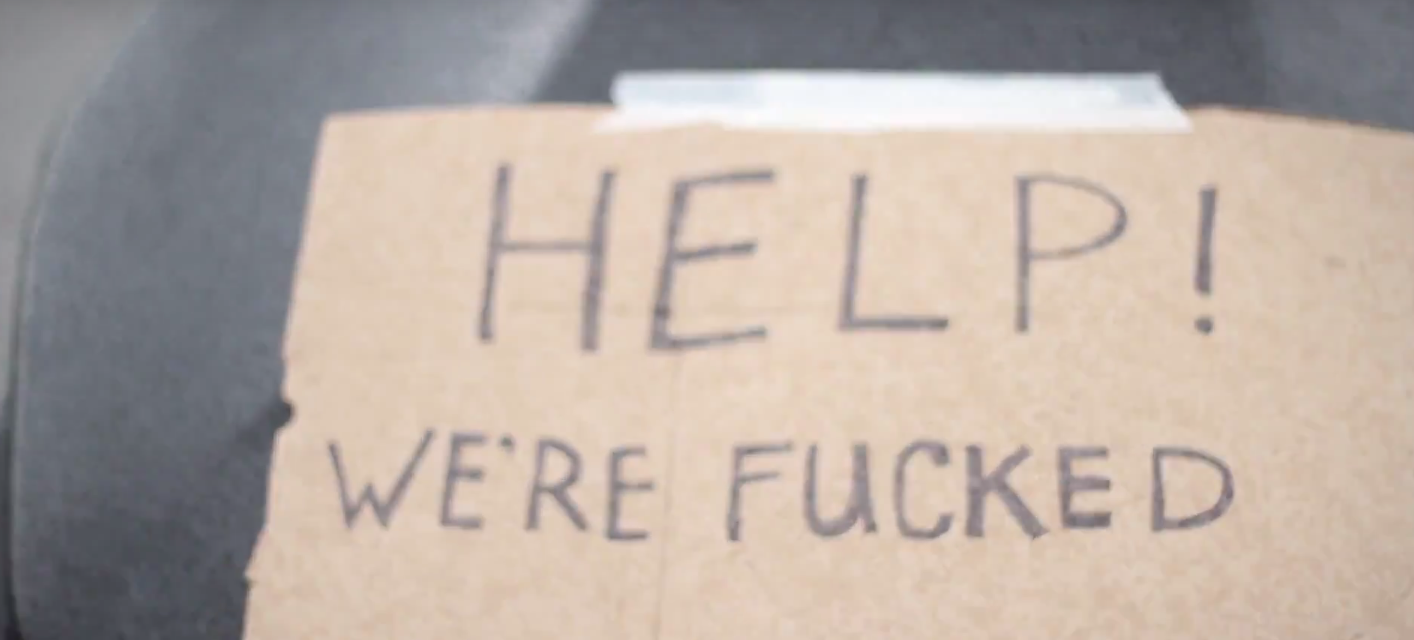 HELP!
WE'RE FUCKED